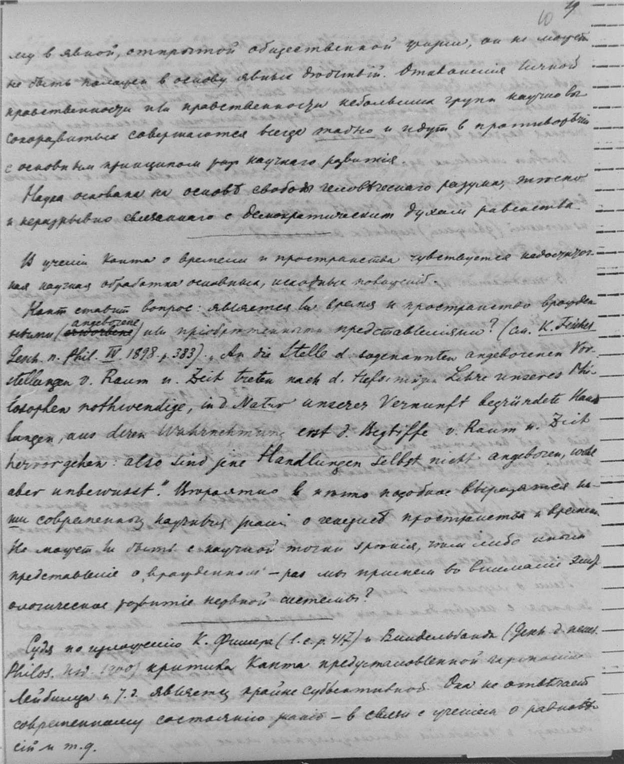 10 19
му в явной, открытой общественной жизни, он не может
не быть положен в основу явных действий. Отклонения личной
нравственности или нравственности небольших групп научно вы-
сокоразвитых совершаются всегда тайно и идут в противоречии
с основным принципом научного развития.
Наука основана на основѣ свободы человѣческого разума, тѣсно
и неразрывно связанного с демократическим духом равенства
В учении Канта о времени и пространстве чувствуется недостаточ-
ная научная обработка основных, исходных положений.
Кант ставит вопрос: является ли время и пространство врожден-
ными (angeborene) или приобретенными представлениями? (см. K. Fischer
Gesch. n. Phil. IV. 1898. p. 383). „An die Stelle d. sogenannten angeborenen Vor-
stellungen v. Raum u. Zeit treten nach d. Lehre unseres Phi-
losophen nothwendige, in d. Natur unserer Vernunft begründete Hand-
lungen, aus deren Wahrnehmung erst d. Begriffe v. Raum u. Zeit
hervorgehen: also sind jene Handlungen selbst nicht angeboren, wohl
aber unbewusst." Вѣроятно в нѣчто подобное выразятся на-
ши современные научные знания о генезисѣ пространства и времени
Не может ли быть с научной точки зрѣния, чѣм либо иным
представление о „врожденном" – раз мы примем во внимание
ологическое развитие нервной системы?
Судя по изложению К. Фишера (l.c. p. 417) и Виндельбанда (Gesch. d. neuer.
Philos. 1900) критика Канта предустановленной гармонии
Лейбница и т.д. является крайне субъективной. Она не отвѣчает
современному состоянию – в связи с учением о равновѣ-
сии и т.д.